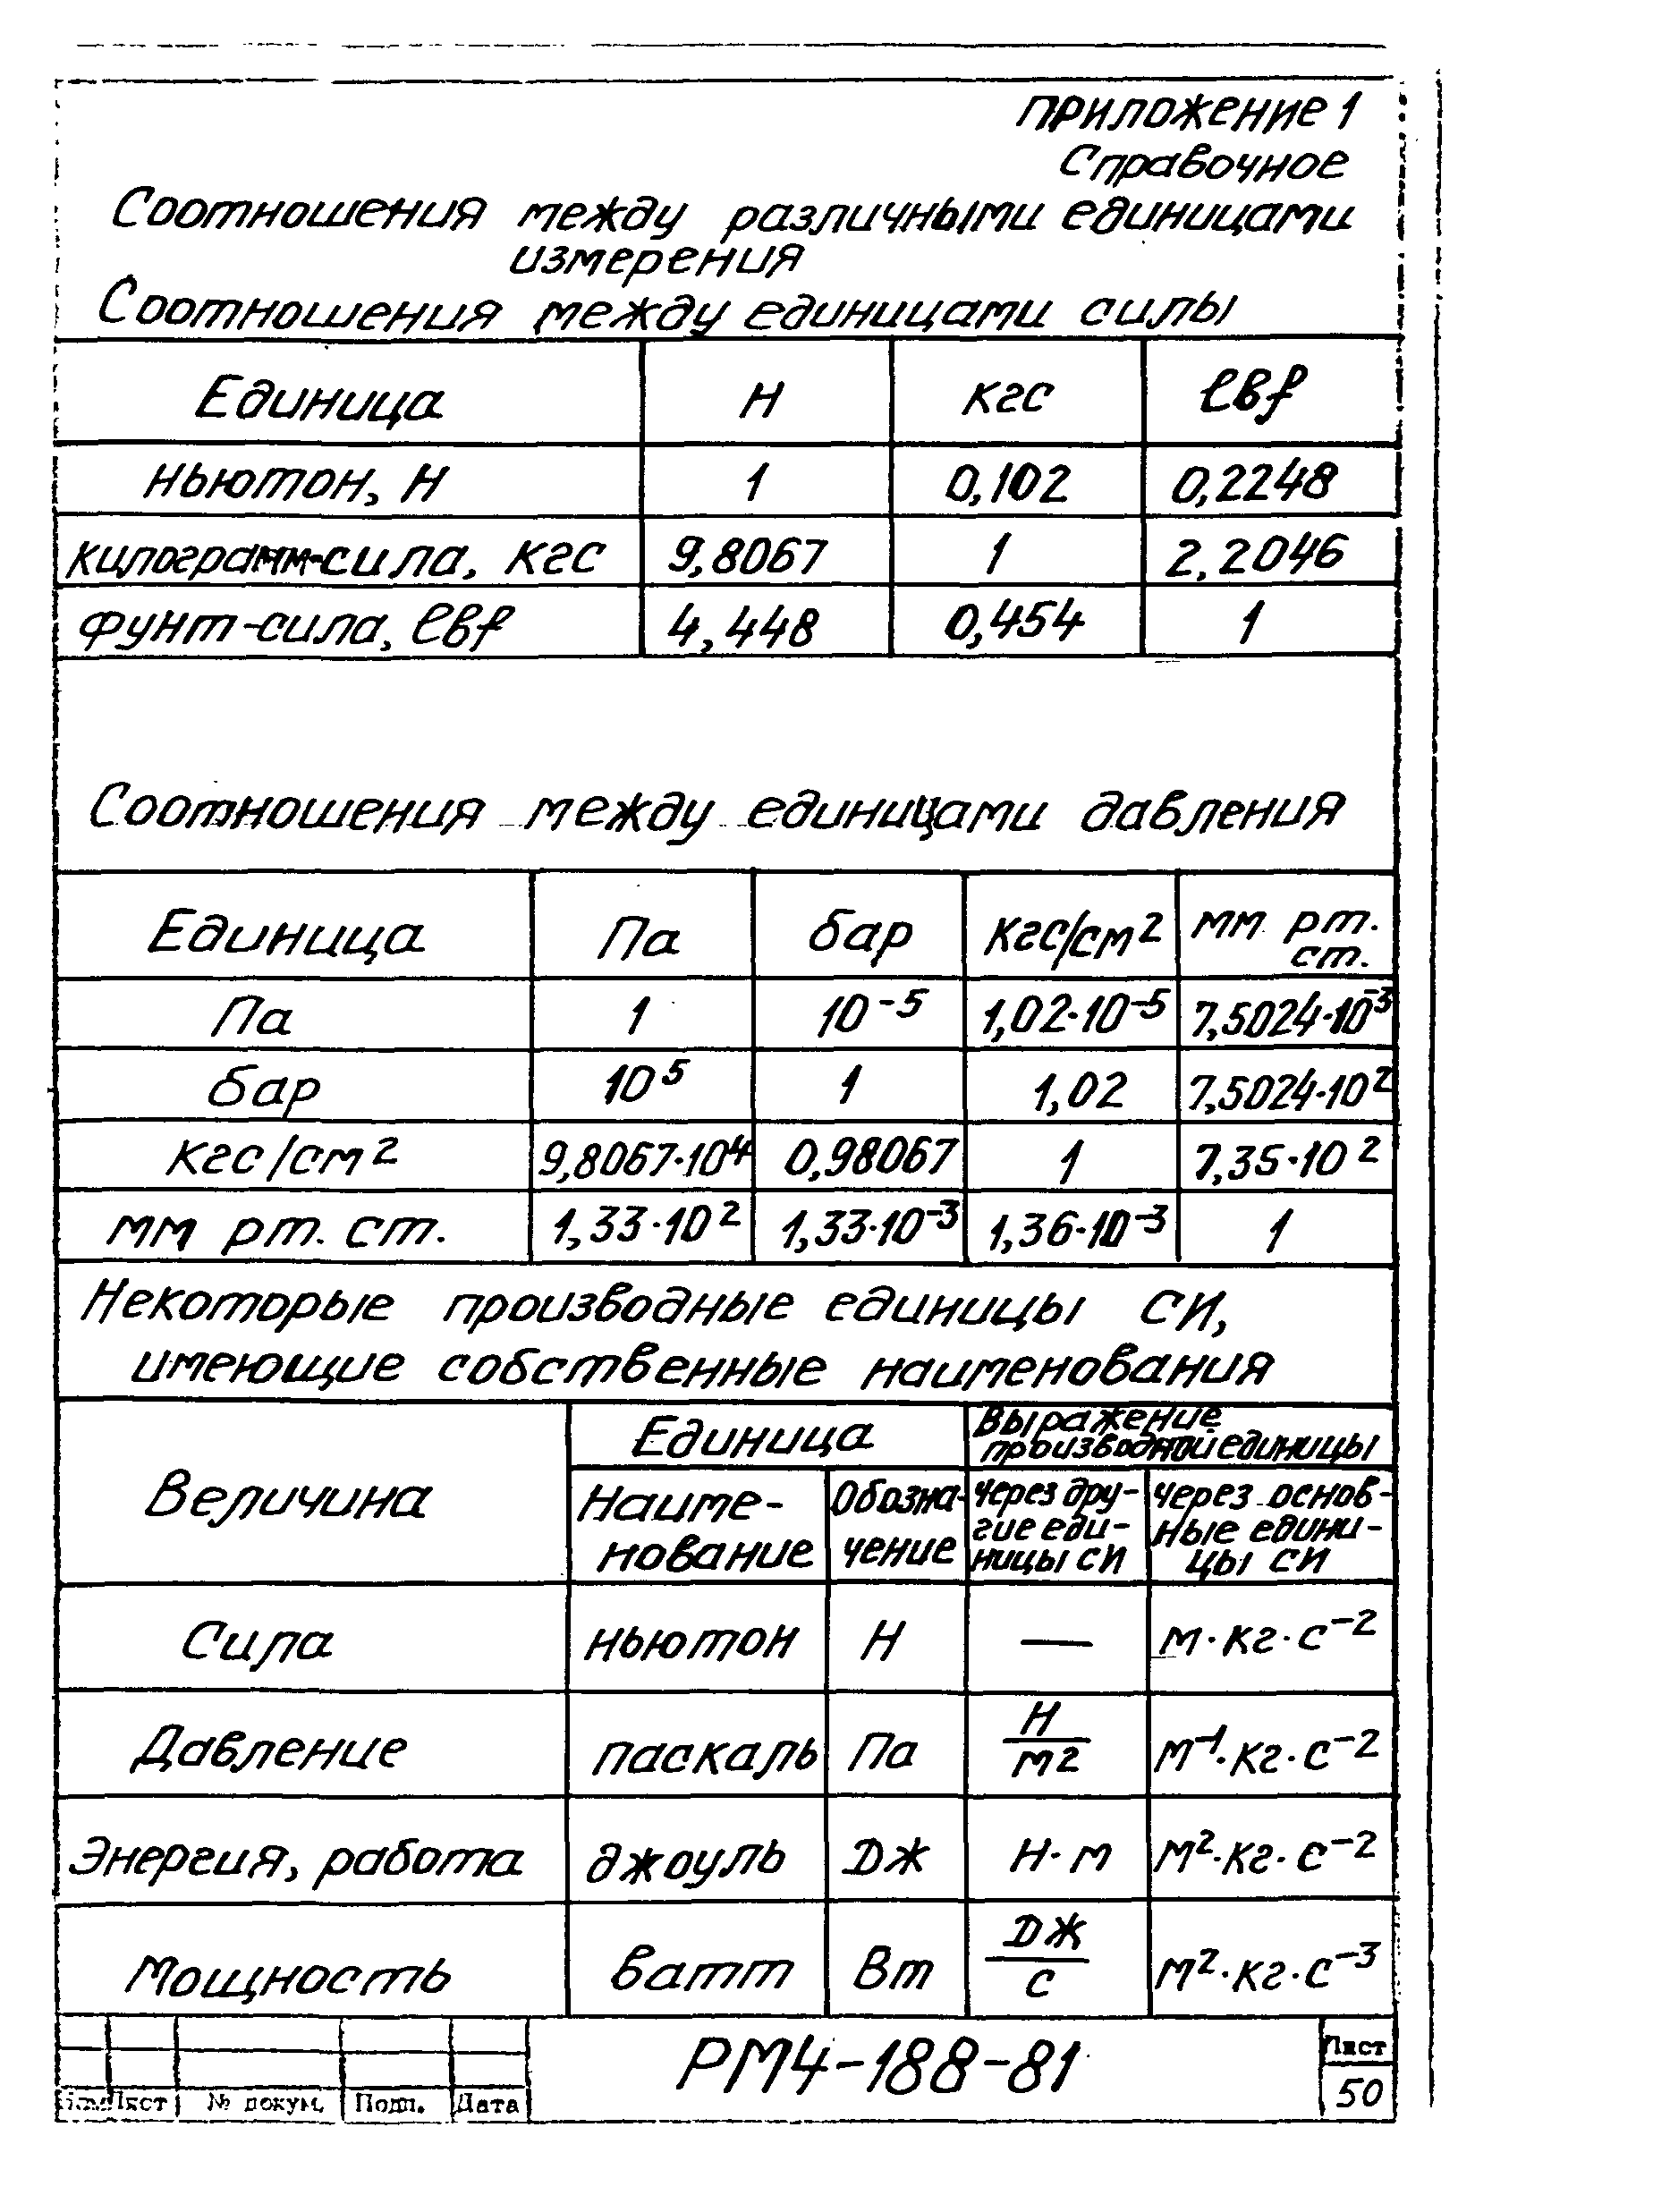 Приложение 1
Справочное
Соотношения между различными единицами
измерения
Соотношения между единицами силы
Единица Н кгс lbf
Ньютон, Н 1 0,102 0,2248
Килограмм-сила, кгс 9,8067 1 2,2046
Фунт-сила, lbf 4,448 0,454 1
Соотношения между единицами давления
Единица Па бар кгс/см² мм рт.
ст.
Па 1 10⁻⁵ 1,02·10⁻⁵ 7,5024·10⁻³
бар 10⁵ 1 1,02 7,5024·10²
кгс/см² 9,8067·10⁴ 0,98067 1 7,35·10²
мм рт. ст. 1,33·10² 1,33·10⁻³ 1,36·10⁻³ 1
Некоторые производные единицы СИ,
имеющие собственные наименования
Величина Единица Выражение
производной единицы
Наиме- Обозна- через дру- через основ-
нование чение гие еди- ные едини-
ницы СИ цы СИ
Сила ньютон Н — м·кг·с⁻²
Давление паскаль Па Н/м² м⁻¹·кг·с⁻²
Энергия, работа джоуль Дж Н·м м²·кг·с⁻²
Мощность ватт Вт Дж/с м²·кг·с⁻³
РМ4-188-81
Лист
50
Лист № докум. Подп. Дата